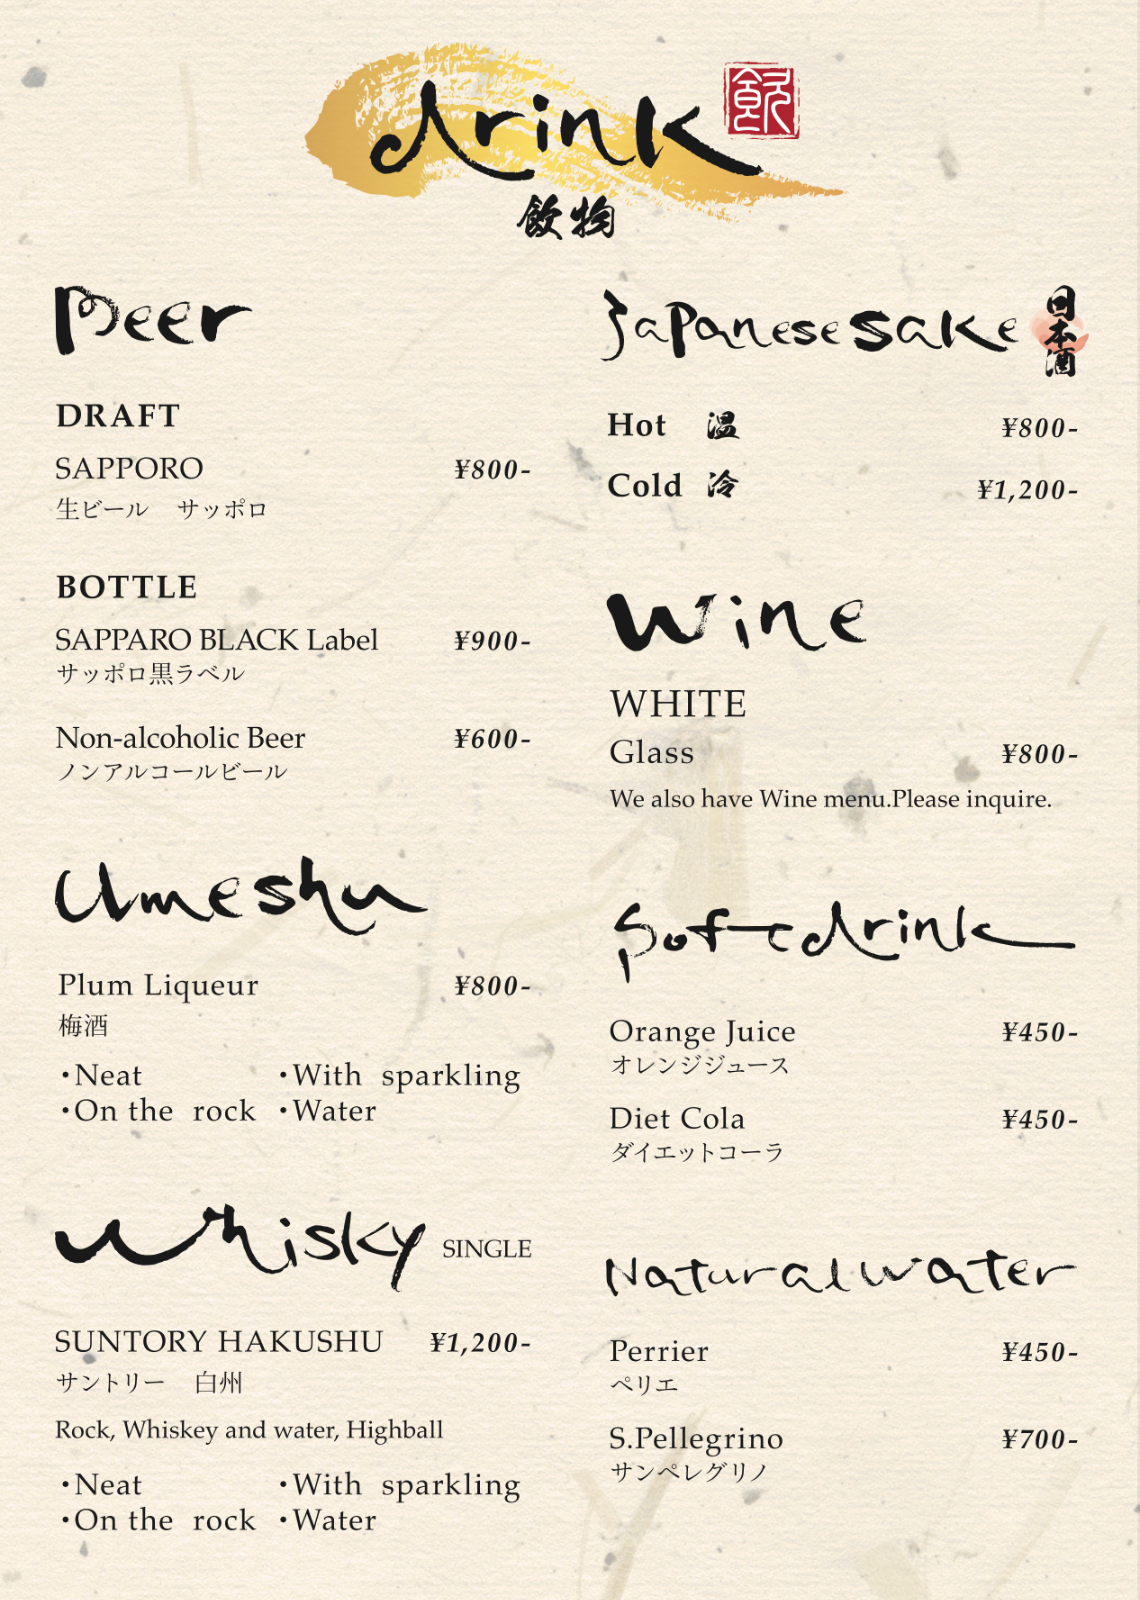 drink
飲
飲物
Beer
DRAFT
SAPPORO ¥800-
生ビール サッポロ
BOTTLE
SAPPARO BLACK Label ¥900-
サッポロ黒ラベル
Non-alcoholic Beer ¥600-
ノンアルコールビール
Umeshu
Plum Liqueur ¥800-
梅酒
・Neat ・With sparkling
・On the rock ・Water
Whisky SINGLE
SUNTORY HAKUSHU ¥1,200-
サントリー 白州
Rock, Whiskey and water, Highball
・Neat ・With sparkling
・On the rock ・Water
Japanese sake 日本酒
Hot 温 ¥800-
Cold 冷 ¥1,200-
Wine
WHITE
Glass ¥800-
We also have Wine menu.Please inquire.
Soft drink
Orange Juice ¥450-
オレンジジュース
Diet Cola ¥450-
ダイエットコーラ
Natural water
Perrier ¥450-
ペリエ
S.Pellegrino ¥700-
サンペレグリノ